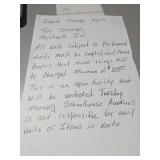 Storage Units
421 Storage
Monticello Ill
All Units subject to Prepayment
Units must be emptied and
Buyers that leave things will
be Charged. Minimum of
This is an open facility that
will be unlocked Tuesday
Morning Schoolhouse Auctions
is not responsible for small
units or Items in Units.